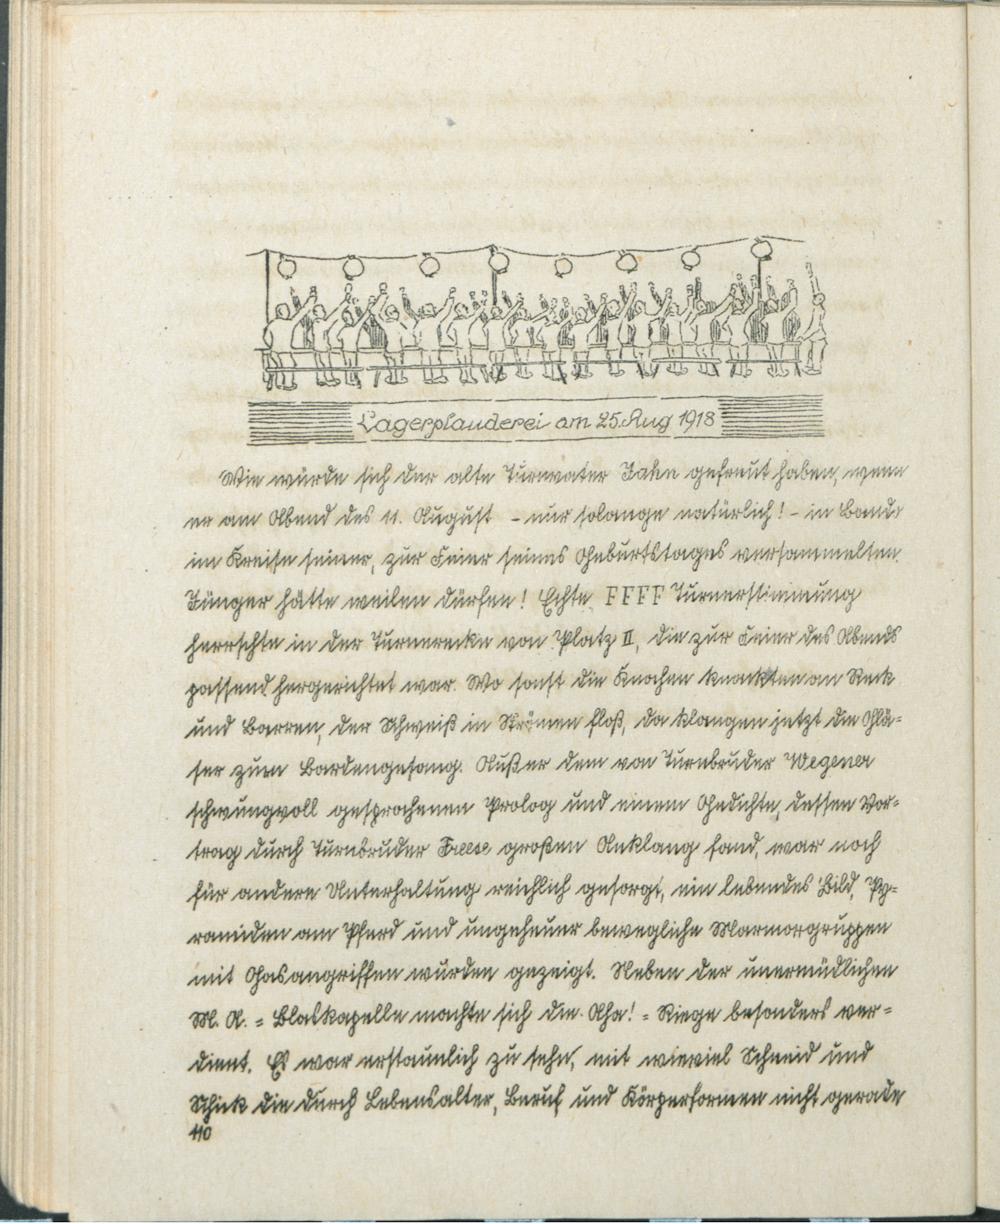 Lagerplauderei am 25. Aug 1918
Wie würde sich der alte Turnvater Jahn gefreut haben, wenn
er am Abend des 11. August - nur solange natürlich! - in Bando
im Kreise seiner, zur Feier seines Geburtstages versammelten
Jünger hätte weilen dürfen! Echte FFFF Turnerstimmung
herrschte in der Turnerecke von Platz II, die zur Feier des Abends
passend hergerichtet war. Wo sonst die Knochen knackten an Reck
und Barren, der Schweiß in Strömen floß, da klangen jetzt die Glä-
ser zum Bardengesang. Außer dem von Turnbruder Wegener
schwungvoll gesprochenen Prolog und einem Gedichte, dessen Vor-
trag durch Turnbruder Freese großen Anklang fand, war noch
für andere Unterhaltung reichlich gesorgt, ein lebendes Bild, Py-
ramiden am Pferd und ungeheuer bewegliche Marmorgruppen
mit Gasangriffen wurden gezeigt. Neben der unermüdlichen
M. A. = Blaskapelle machte sich die Aha! = Riege besonders ver-
dient. Es war erstaunlich zu sehn, mit wieviel Schneid und
Schick die durch Lebensalter, Beruf und Körperformen nicht gerade
110